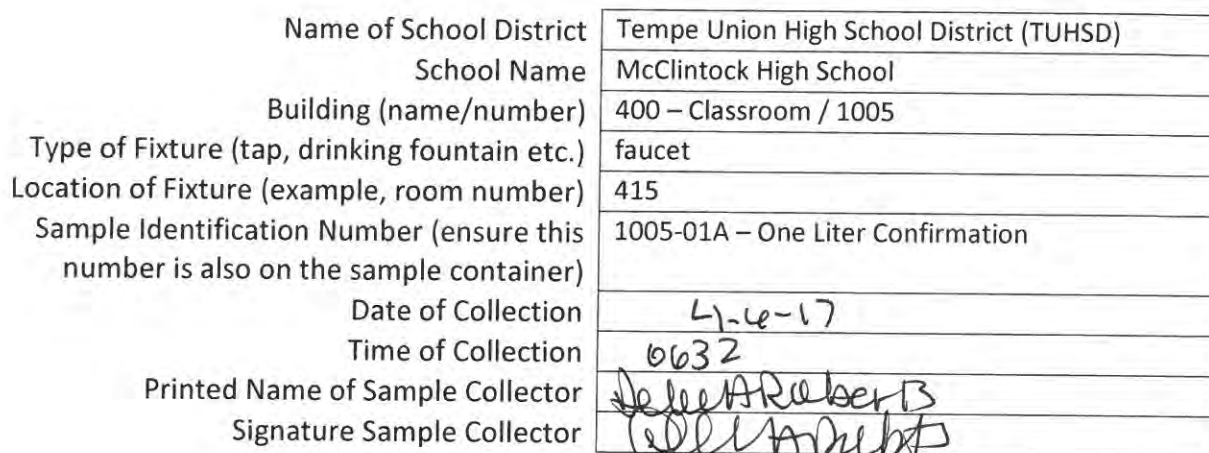 Name of School District Tempe Union High School District (TUHSD)
School Name McClintock High School
Building (name/number) 400 – Classroom / 1005
Type of Fixture (tap, drinking fountain etc.) faucet
Location of Fixture (example, room number) 415
Sample Identification Number (ensure this 1005-01A – One Liter Confirmation
number is also on the sample container)
Date of Collection 4-6-17
Time of Collection 0632
Printed Name of Sample Collector
Signature Sample Collector